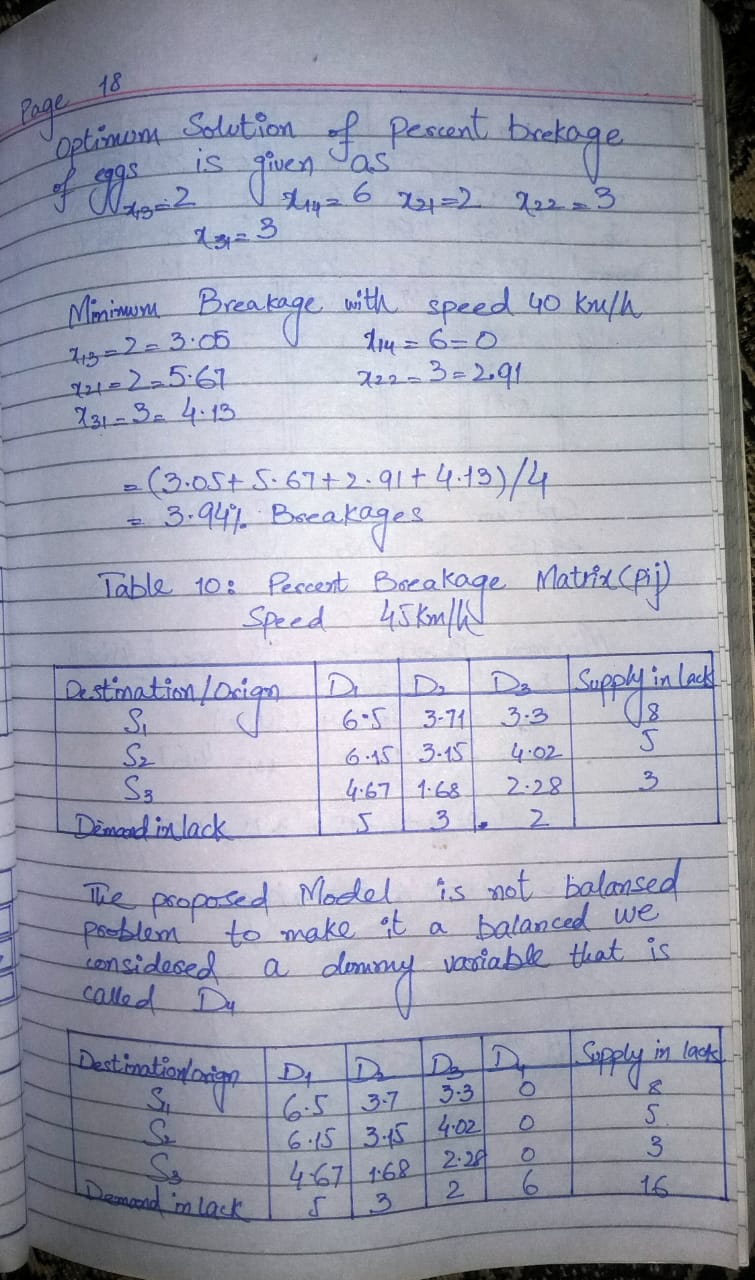 Page 18
Optimum Solution of Percent brekage
of eggs is given as
x13=2 x14=6 x21=2 x22=3
x31=3
Minimum Breakage with speed 40 Km/h
x13=2=3.05 x14=6=0
x21=2=5.67 x22=3=2.91
x31=3=4.13
=(3.05+5.67+2.91+4.13)/4
= 3.94% Breakages
Table 10: Percent Breakage Matrix (Pij)
Speed 45Km/h
Destination/Orign D1 D2 D3 Supply in lack
S1 6.5 3.71 3.3 8
S2 6.15 3.15 4.02 5
S3 4.67 1.68 2.28 3
Demand in lack 5 3 2
The proposed Model is not balansed
problem to make it a balanced we
considered a dommy variable that is
called D4
Destination/orign D1 D2 D3 D4 Supply in lack
S1 6.5 3.7 3.3 0 8
S2 6.15 3.15 4.02 0 5
S3 4.67 1.68 2.28 0 3
Demand in lack 5 3 2 6 16